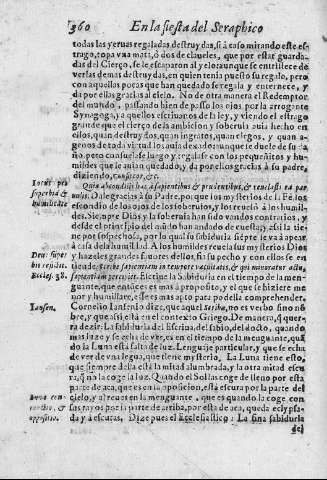 360 En la fiesta del Seraphico
todas las yeruas regaladas destruydas, si à caso mirando este es-
trago, topa vna mata, ò dos de claueles, que por estar guarda-
das del Cierço, se le escaparon al yelo: aunque se entristece de
ver las demas destruydas, en quien tenia puesto su regalo, pero
con aquellos pocos que han quedado se regala y enternece, y
da por ellas gracias al cielo. No de otra manera el Redemptor
del mundo, passando bien de passo los ojos por la arrogante
Synagoga, a aquellos escriuanos de la ley, y viendo el estrago
grande que el cierço de la ambicion y soberuia auia hecho en
ellos, quan destruydos, quan ingratos, quan ciegos, y quan a-
genos de toda virtud los auia dexado, aunque le duele de su da-
ño, pero consuelase luego y regalase con los pequeñitos y hu-
mildes que le auian quedado, y da por ellos gracias à su padre,
diziendo, Confiteor, &c.
Quia abscondisti hæc à sapientibus & prudentibus, & reuelasti ea par-
uulis. Da le gracias à su Padre, porque los mysterios de la Fè los
escondio de los ojos de los soberuios, y los reuelò à los humil-
des. Siempre Dios y la soberuia han sido vandos contrarios, y
desde el principio del mundo han andado de
por lo qual su sabiduria siẽpre se va à apear
à casa de la humildad. A los humildes reuela sus mysterios Dios
y hazeles grandes fauores dellos, fia su pecho y con ellos se en-
tiende. Scribe sapientiam in tempore vacuitatis, & qui minoratur actu,
sapientiam percipiet. Escriue la Sabiduria en el tiempo de la men-
guante, que entonces es mas a proposito, y el que se hiziere me-
nor y humillare, esse es mas apto para podella comprehender.
Cornelio Iansenio dize, que aquel scriba, no es verbo sino nõ-
bre, y que assi està en el contexto Griego. De manera, que quer-
ra dezir: La sabiduria del Escriba, del sabio, del docto, quando
mas luze y se echa de ver, es en el tiempo de la menguante, quã-
do la Luna està falta de luz. Lenguaje particular, y que se echa
de ver de vna legua, que tiene mysterio. La Luna tiene esto,
que siempre della està la mitad alumbrada, y la otra mitad escu-
ra, q̃ no la coge la luz. Quando el Sol la coge de lleno por esta
parte de aca, que es en la opposicion, està escura por la parte del
cielo, y al reues en la menguante, que es quando la coge con
sus rayos por la parte de arriba, por esta de aca, queda eclypsa-
da y à escuras. Dize pues el Ecclesiastico: La fina sabiduria
del
Deus super
Eccles. 38.
Iansen.